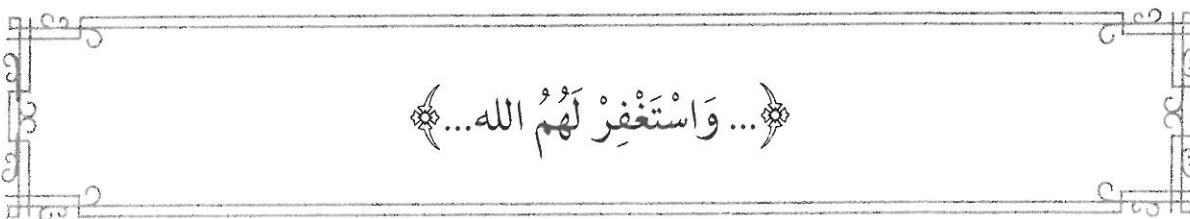 ﴿... وَاسْتَغْفِرْ لَهُمُ الله...﴾